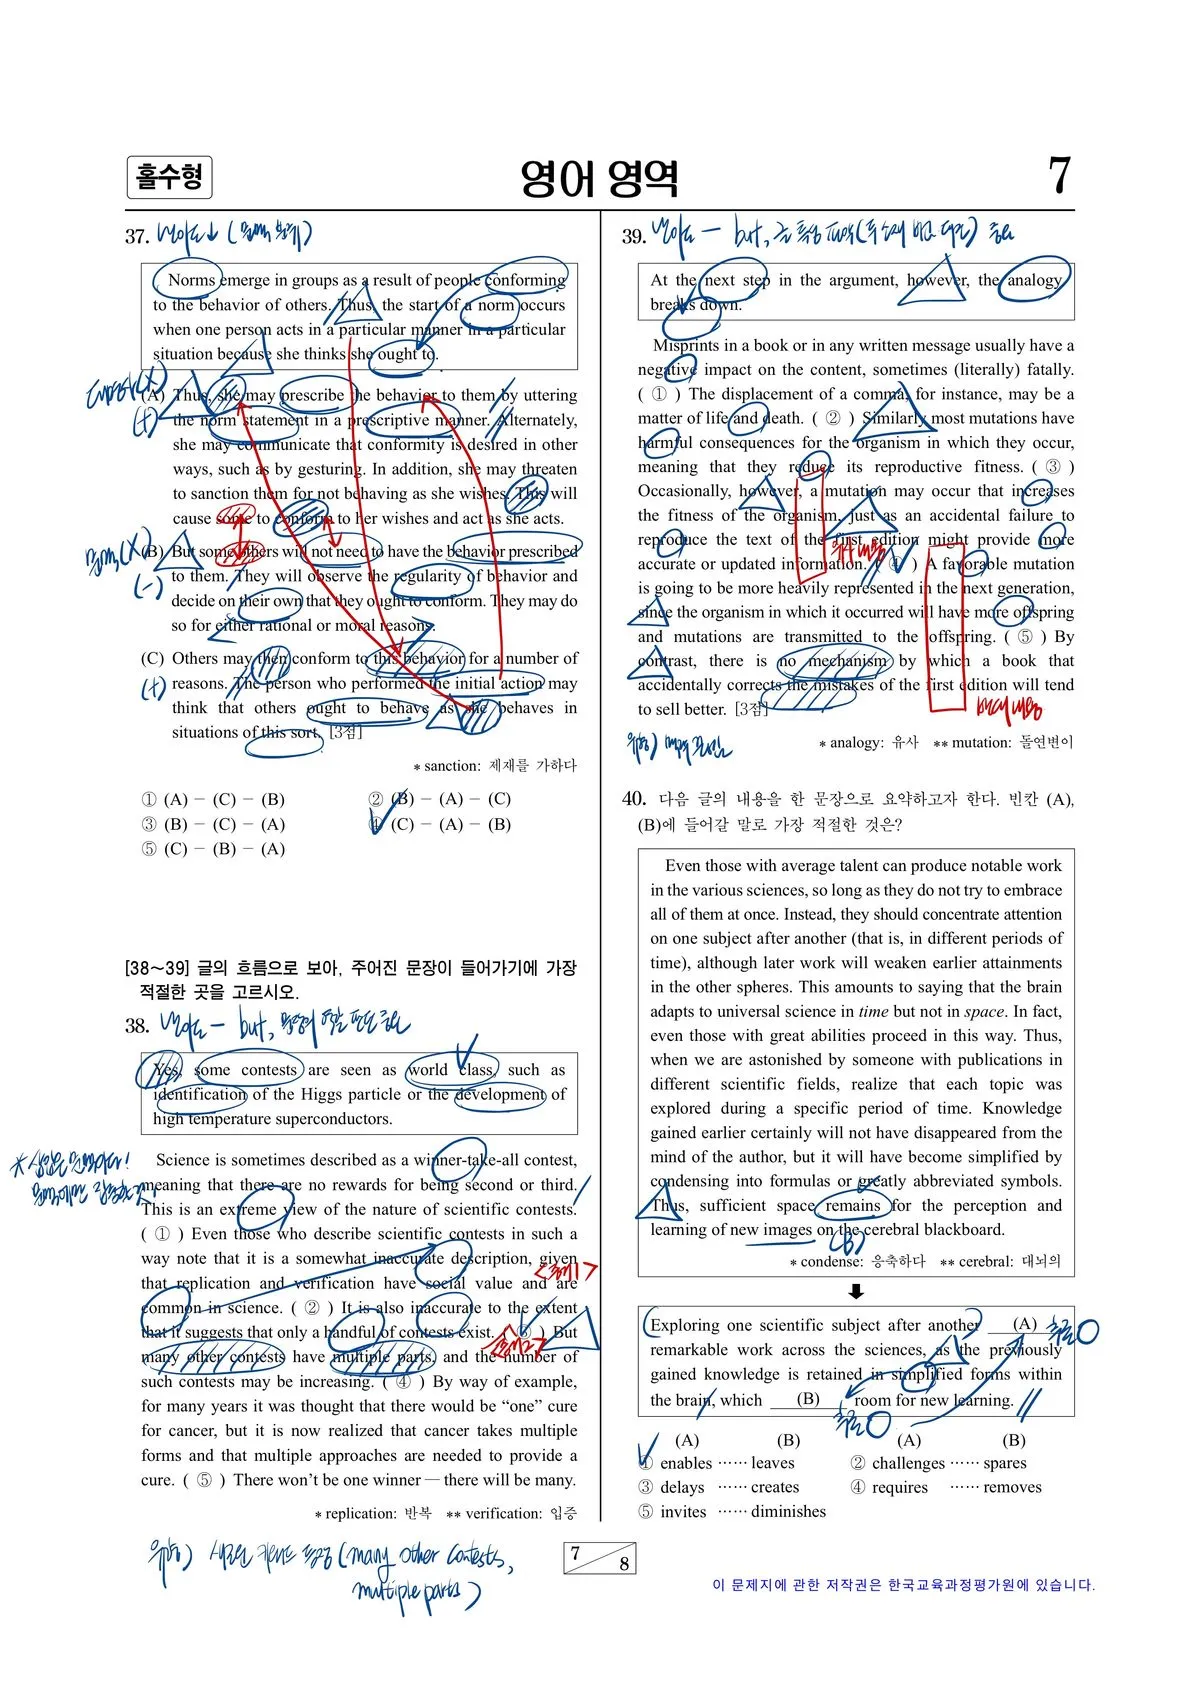 홀수형
영어 영역
7
37. 난이도↓
Norms emerge in groups as a result of people conforming
to the behavior of others. Thus, the start of a norm occurs
when one person acts in a particular manner in a particular
situation because she thinks she ought to.
(A) Thus, she may prescribe the behavior to them by uttering
(+)
the norm statement in a prescriptive manner. Alternately,
she may communicate that conformity is desired in other
ways, such as by gesturing. In addition, she may threaten
to sanction them for not behaving as she wishes. This will
cause some to conform to her wishes and act as she acts.
(B) But some others will not need to have the behavior prescribed
(-)
to them. They will observe the regularity of behavior and
decide on their own that they ought to conform. They may do
so for either rational or moral reasons.
(C) Others may then conform to this behavior for a number of
(+)
reasons. The person who performed the initial action may
think that others ought to behave as she behaves in
situations of this sort. [3점]
* sanction: 제재를 가하다
① (A) - (C) - (B)
② (B) - (A) - (C)
③ (B) - (C) - (A)
④ (C) - (A) - (B)
⑤ (C) - (B) - (A)
[38~39] 글의 흐름으로 보아, 주어진 문장이 들어가기에 가장
적절한 곳을 고르시오.
38. 난이도 - but,
Yes, some contests are seen as world class, such as
identification of the Higgs particle or the development of
high temperature superconductors.
Science is sometimes described as a winner-take-all contest,
meaning that there are no rewards for being second or third.
This is an extreme view of the nature of scientific contests.
( ① ) Even those who describe scientific contests in such a
way note that it is a somewhat inaccurate description, given
that replication and verification have social value and are
common in science. ( ② ) It is also inaccurate to the extent
that it suggests that only a handful of contests exist. ( ③ ) But
many other contests have multiple parts, and the number of
such contests may be increasing. ( ④ ) By way of example,
for many years it was thought that there would be “one” cure
for cancer, but it is now realized that cancer takes multiple
forms and that multiple approaches are needed to provide a
cure. ( ⑤ ) There won’t be one winner — there will be many.
* replication: 반복 ** verification: 입증
(many other contests,
multiple parts)
39. 난이도 - but,
At the next step in the argument, however, the analogy
breaks down.
Misprints in a book or in any written message usually have a
negative impact on the content, sometimes (literally) fatally.
( ① ) The displacement of a comma, for instance, may be a
matter of life and death. ( ② ) Similarly most mutations have
harmful consequences for the organism in which they occur,
meaning that they reduce its reproductive fitness. ( ③ )
Occasionally, however, a mutation may occur that increases
the fitness of the organism, just as an accidental failure to
reproduce the text of the first edition might provide more
accurate or updated information. ( ④ ) A favorable mutation
is going to be more heavily represented in the next generation,
since the organism in which it occurred will have more offspring
and mutations are transmitted to the offspring. ( ⑤ ) By
contrast, there is no mechanism by which a book that
accidentally corrects the mistakes of the first edition will tend
to sell better. [3점]
* analogy: 유사 ** mutation: 돌연변이
40. 다음 글의 내용을 한 문장으로 요약하고자 한다. 빈칸 (A),
(B)에 들어갈 말로 가장 적절한 것은?
Even those with average talent can produce notable work
in the various sciences, so long as they do not try to embrace
all of them at once. Instead, they should concentrate attention
on one subject after another (that is, in different periods of
time), although later work will weaken earlier attainments
in the other spheres. This amounts to saying that the brain
adapts to universal science in time but not in space. In fact,
even those with great abilities proceed in this way. Thus,
when we are astonished by someone with publications in
different scientific fields, realize that each topic was
explored during a specific period of time. Knowledge
gained earlier certainly will not have disappeared from the
mind of the author, but it will have become simplified by
condensing into formulas or greatly abbreviated symbols.
Thus, sufficient space remains for the perception and
learning of new images on the cerebral blackboard.
(B)
* condense: 응축하다 ** cerebral: 대뇌의
Exploring one scientific subject after another (A)
remarkable work across the sciences, as the previously
gained knowledge is retained in simplified forms within
the brain, which (B) room for new learning.
(A) (B) (A) (B)
① enables ⋯⋯ leaves
② challenges ⋯⋯ spares
③ delays ⋯⋯ creates
④ requires ⋯⋯ removes
⑤ invites ⋯⋯ diminishes
7
8
이 문제지에 관한 저작권은 한국교육과정평가원에 있습니다.